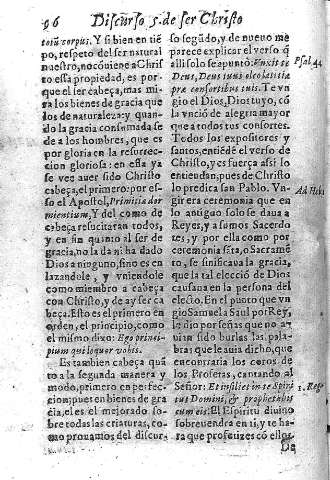 96 Discurso 5. de ser Christo
totũ corpus. Y si bien en tiẽ
po, respeto del ser natural
nuestro, no cõuiene a Chris
to esta propiedad, es por-
que el ser cabeça, mas mi-
ra los bienes de gracia que
los de naturaleza: y quan-
do la gracia consumada se
dè a los hombres, que es
por gloria en la resurrec-
cion gloriosa: en esta ya
se vee auer sido Christo
cabeça, el primero: por es-
so el Apostol, Primitiæ dor
mientium, Y del como de
cabeça resucitaran todos,
y en fin quanto al ser de
gracia, no la dà ni ha dado
Dios a ninguno, sino es en
lazandole, y vniendole
como miembro a cabeça
con Christo, y de ay ser ca
beça. Esto es el primero en
orden, el principio, como
el mismo dixo: Ego princi-
pium qui loquor vobis.
Es tambien cabeça quã
to a la segunda manera y
modo, primero en perfec-
cion; pues en bienes de gra
cia, el es el mejorado so-
bre todas las criaturas, co-
mo prouamos del discur-
so segũdo, y de nueuo me
parece explicar el verso q̃
alli solo se apuntò: Vnxit te
Deus, Deus tuus oleo lætitiæ
præ consortibus tuis. Te vn
gio el Dios, Dios tuyo, cõ
la vnciõ de alegria mayor
que a todos tus consortes.
Todos los expositores y
santos, entiẽdẽ el verso de
Christo, y es fuerça assi lo
entiendan, pues de Christo
lo predica san Pablo. Vn-
gir era ceremonia que en
lo antiguo solo se daua a
Reyes, y a sumos Sacerdo
tes, y por ella como por
ceremonia santa, o Sacramẽ
to, se sinificaua la gracia,
que la tal elecciõ de Dios
causaua en la persona del
electo. En el punto que vn
gio Samuel a Saul por Rey,
le dio por señas que no a-
uian sido burlas las pala-
bras que le auia dicho, que
encontraria los coros de
los Profetas, cantando al
Señor: Et insiliet in te Spiri
tus Domini, & prophetabis
cum eis. El Espiritu diuino
sobreuendra en ti, y te ha-
ra que profetizes cõ ellos.
De
Psal. 44
Ad Heb.
1. Reg.